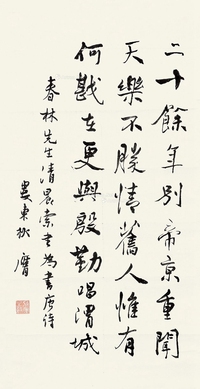 二十餘年別帝京重聞
天樂不勝情舊人惟有
何戡在更與殷勤唱渭城
春林先生清晨索書為書唐詩
婁東